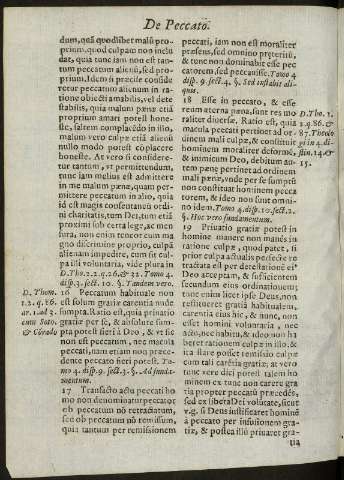 De Peccato.
dum, quā quodlibet malū pro-
prium, quod culpam non inclu
dat, quia tunc iam non est tan-
tum peccatum alienū, sed pro-
prium. Idem si præcise conside
retur peccatum alienum in ra-
tione obiecti amabilis, vel dete
stabilis, quia malum pœnæ etiā
proprium amari potest hone-
ste, saltem complacēdo in illo,
malum vero culpæ etiā alienū
nullo modo potest cōplacere
honeste. At vero si considere-
tur tantum, vt permittendum,
tunc iam melius est admittere
in me malum pœnæ, quam per-
mittere peccatum in alio, quia
id est magis consentaneū ordi-
ni charitatis, tum Dei, tum etiā
proximi sub certa lege, ac men
sura, non enim tenetur cum ma
gno discrimine proprio, culpā
alienam impedire, cum sit cul-
pa illi voluntaria, vide plura in
D. Tho. 2. 2. q. 26. & 32. Tomo 4.
disp. 3. sect. 10. §. Tandem vero.
D. Thom.
1. 2. q. 86.
ar. 1. ad 3.
cum Soto.
& Corado
16 Peccatum habituale non
est solum gratiæ carentia nude
sumpta. Ratio est, quia priuatio
gratiæ per se, & absolute sum-
pta potest fieri à Deo, & vt sic
non est peccatum, nec macula
peccati, nam etiam non præce-
dente peccato fieri potest. To-
mo 4. disp. 9. sect. 3. §. Ad funda-
mentum.
17 Transacto actu peccati ho
mo non denominatur peccator
ob peccatum nō retractatum,
sed ob peccatum nō remissum,
quia tantum per remissionem
peccati, iam non est moraliter
præsens, sed omnino præteritū,
& tunc non dominabit esse pec
catorem, sed peccauisse. Tomo 4
disp. 9. sect. 4. §. Sed instabit ali-
quis.
18 Esse in peccato, & esse
reum æternæ pœnæ, sunt res mo
raliter diuersæ. Ratio est, quia
macula peccati pertinet ad or-
dinem mali culpæ, & constituit
hominem moraliter deformē,
& inimicum Deo, debitum au-
tem pœnę pertinet ad ordinem
mali pœnæ, vnde per se sumptū
non constituat hominem pecca
torem, & ideo non sunt omni-
no idem. Tomo 4. disp. 10. sect. 2.
§. Hoc vero fundamentum.
D. Tho. 1.
2. q. 86. &
87. Theolo
gi in 4. di-
stin. 14. &
15.
19 Priuatio gratiæ potest in
homine manere non manēs in
ratione culpæ, quod patet, si
prior culpa actualis perfecte re
tractata est per detestationē ei⁹
Deo acceptam, & sufficientem
secundum eius ordinationem;
tunc enim licet ipse Deus, non
restitueret gratiā habitualem,
carentia eius hic, & nunc, non
esset homini voluntaria, nec
actu, nec habitu, & ideo non ha
beret rationem culpæ in illo, &
ita stare posset remissio culpæ
cum tali carētia gratiæ, at vero
tunc vere dici potest talem ho
minem ex tunc non carere gra
tia propter peccatū præcedēs,
sed ex libera Dei volūtate, sicut
v.g. si Deus iustificaret hominē
à peccato per infusionem gra-
tiæ, & postea illū priuaret gra-
tia